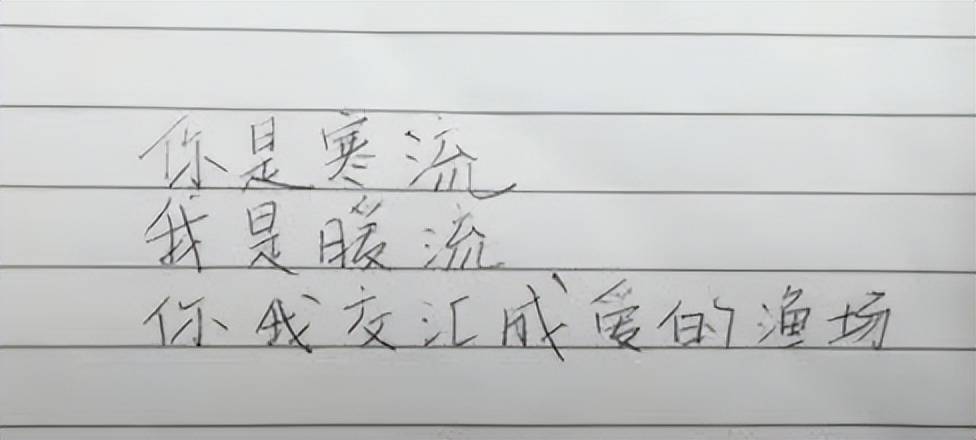 你是寒流
我是暖流
你我交汇成爱的渔场